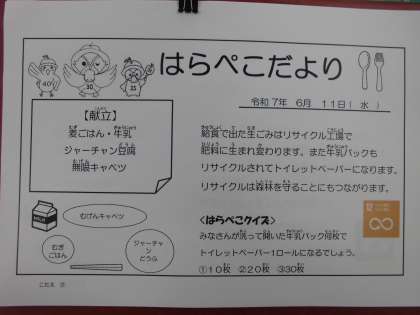 はらぺこだより
令和7年 6月 11日(水)
【献立】
麦ごはん・牛乳
ジャーチャン豆腐
無限キャベツ
給食で出た生ごみはリサイクル工場で
肥料に生まれ変わります。また牛乳パックも
リサイクルされてトイレットペーパーになります。
リサイクルは森林を守ることにもつながります。
MILK
むげんキャベツ
むぎ
ごはん
ジャーチャン
とうふ
<はらぺこクイズ>
みなさんが洗って開いた牛乳パック何枚で
トイレットペーパー1ロールになるでしょう。
①10枚 ②20枚 ③30枚